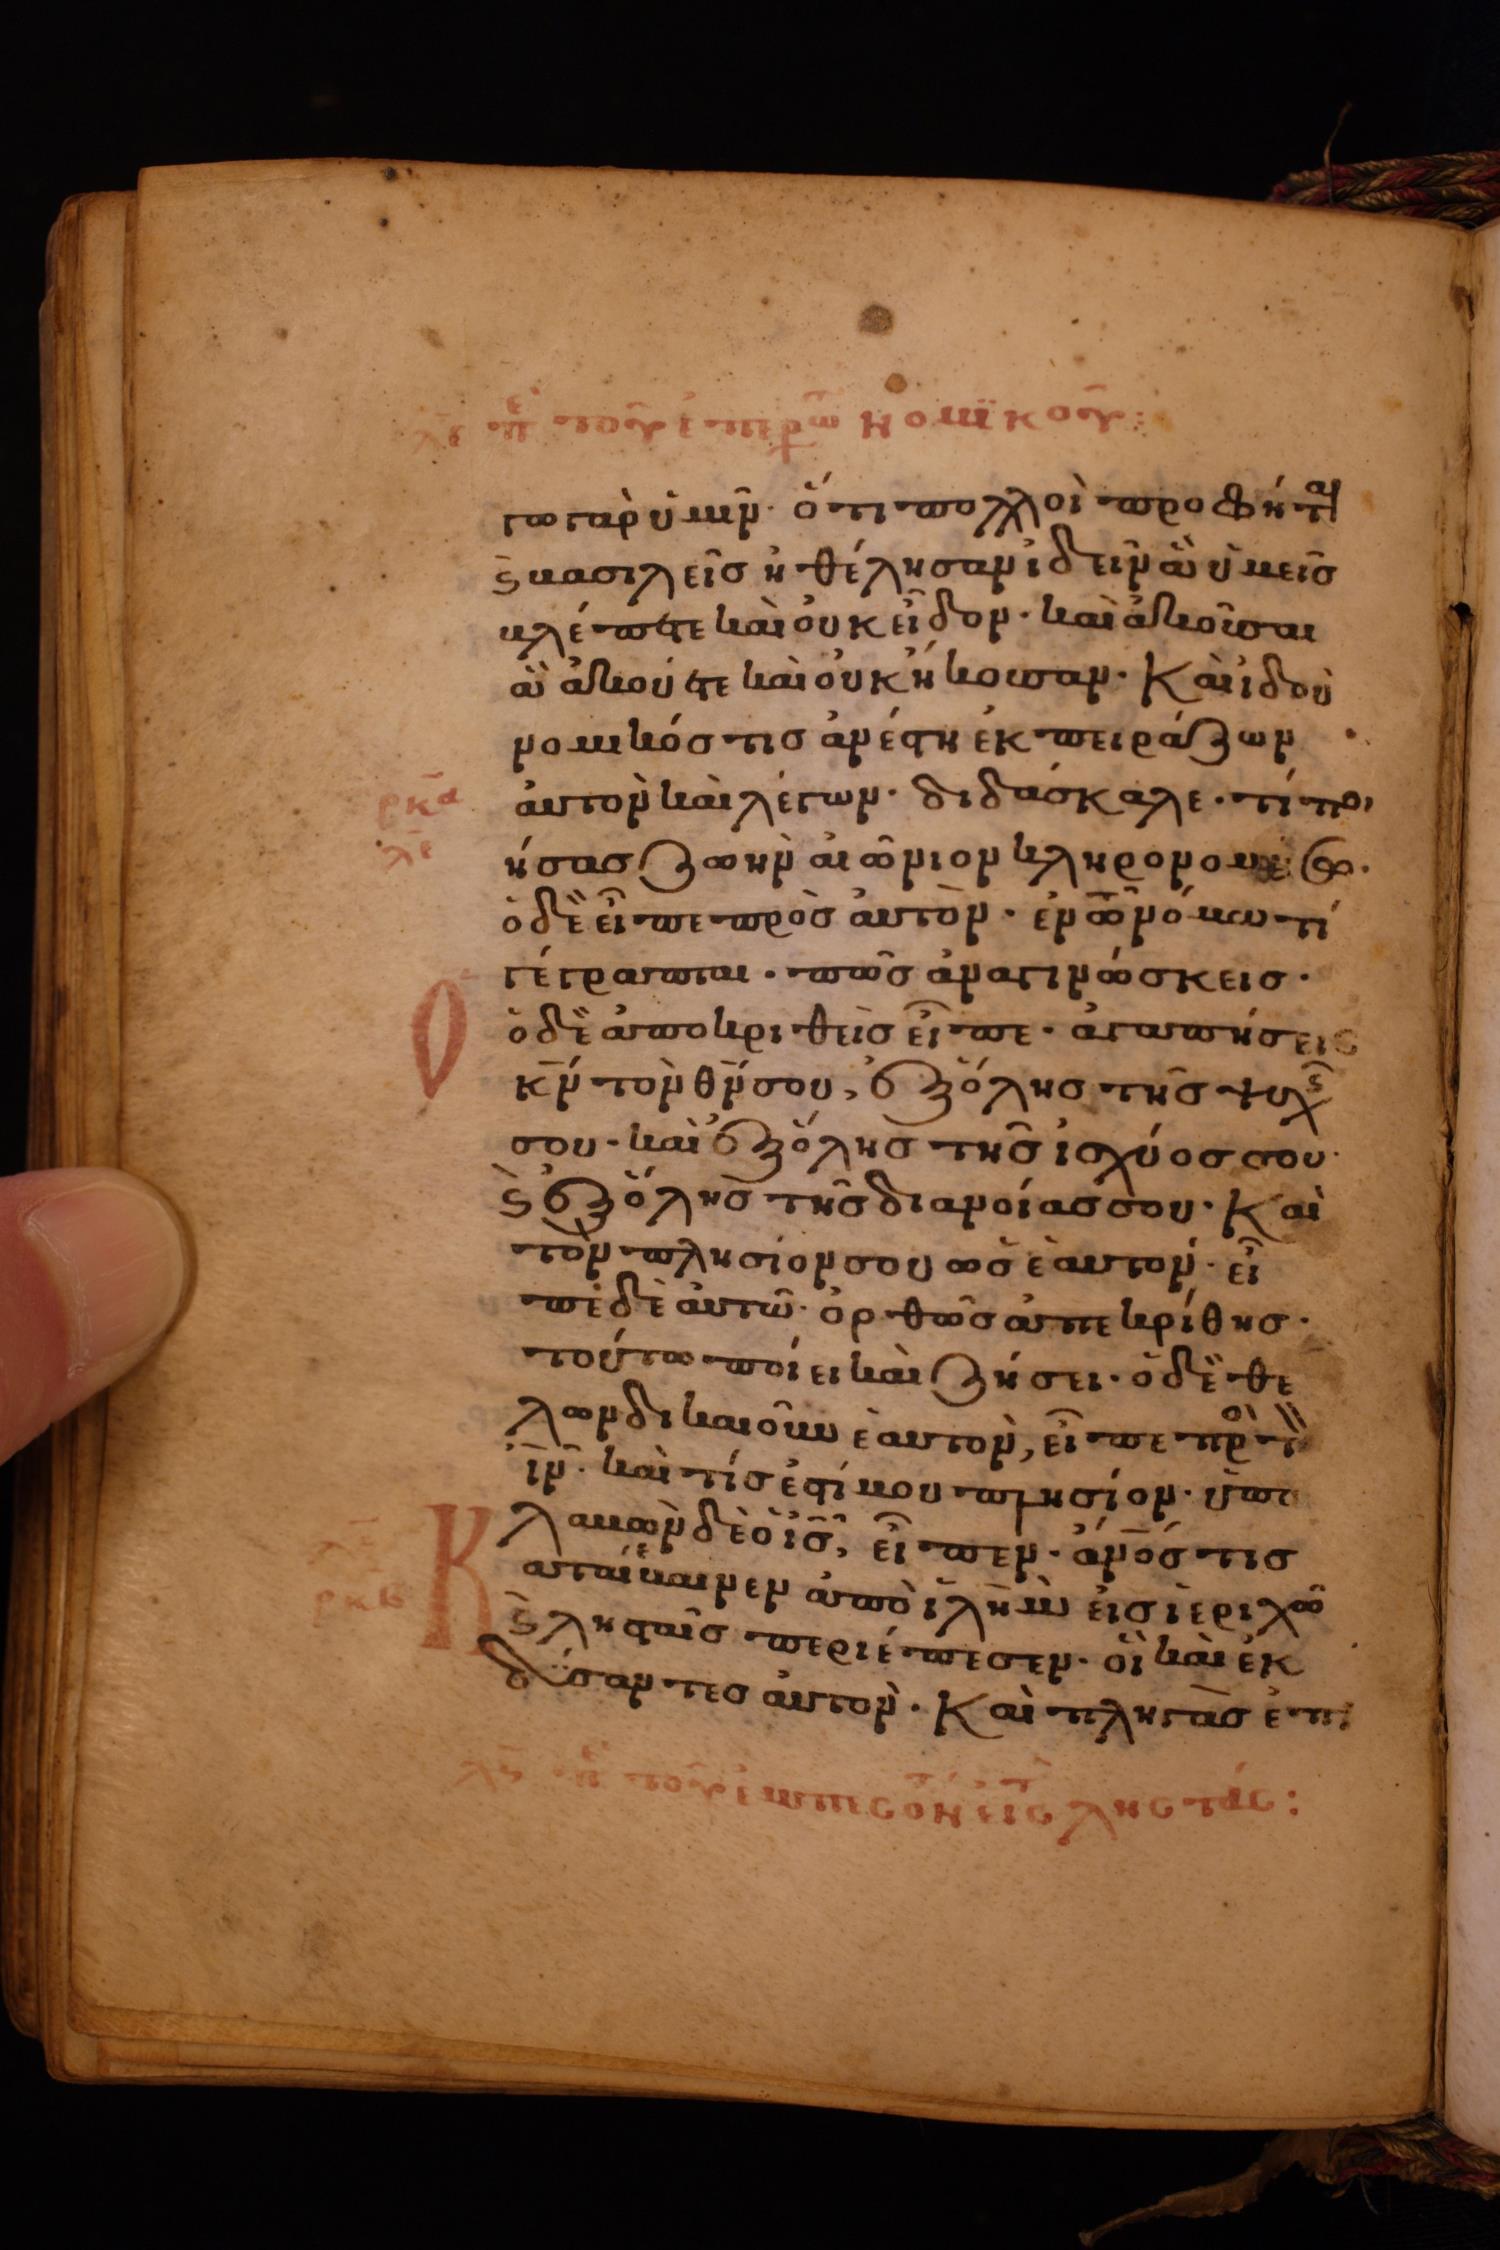 λε π του επερωτ νομϊκου:
γωγὰρ ὑμῖν· ὅτι πολλοὶ προφήται
ϗ βασιλεῖσ ἠθέλησαν ἰδεῖν ἃ ὑμεῖσ
βλέπετε καὶ οὐκ εἶδον· καὶ ἀκοῦσαι
ἃ ἀκούετε καὶ οὐκ ἤκουσαν· Καὶ ἰδοὺ
νομικόσ τισ ἀνέστη ἐκπειράζων
ρκα
αὐτὸν καὶ λέγων· διδάσκαλε· τί ποι
λε
ήσασ ζωὴν αἰώνιον κληρονομή σω·
ὁ δὲ εἶπε πρὸσ αὐτὸν· ἐν τῶ νόμω τί
γέγραπται· πῶσ ἀναγινώσκεισ·
ὁ δὲ ἀποκριθεὶσ εἶπε· ἀγαπήσεισ
κν̄ τὸν θν̄ σου, ἐξ ὅλησ τῆσ ψυχῆσ
σου· καὶ ἐξ ὅλησ τῆσ ἰσχύοσ σου·
ϗ ἐξ ὅλησ τῆσ διανοίασ σου· Καὶ
τὸν πλησίον σου ὡσ ἑαυτόν· εἶ
πὲ δὲ αὐτῶ· ὀρθῶσ ἀπεκρίθησ·
τούτω ποίει καὶ ζήσει· ὁ δὲ θε
λων δικαιοῦν ἑαυτὸν, εἶπε πρὸ τὸν
ιν̄· καὶ τίσ ἐστί μου πλησίον· ὑπο
λαβὼν δὲ ὁ ισ̄, εἶπεν· ἀνόσ τισ
λϛ
κατάβαινεν ἀπὸ ἰλη̄μ εἰσ ἰεριχῶ
ρκβ
ϗ λησταῖσ περιέπεσεν· οἳ καὶ ἐκ
δύσαντεσ αὐτὸν· Καὶ πληγὰσ ἐπι
λϛ π του εμπεσον εισ ληστάσ: